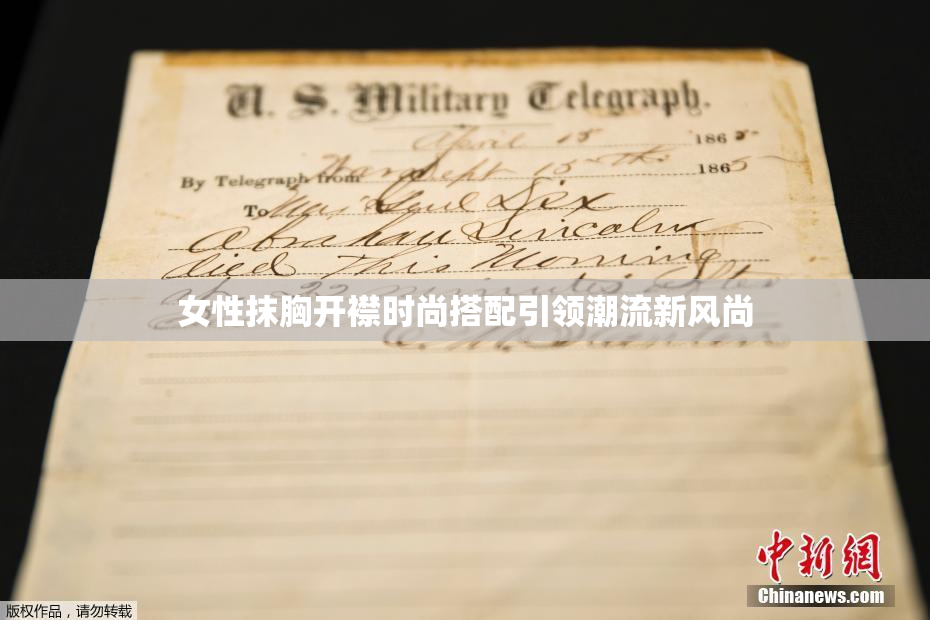 U. S. Military Telegraph.
April 15 1865
By Telegraph from War Dept 15th 1865
To Maj Genl Dix
Abraham Lincoln
died this Morning
at 22 minutes after
女性抹胸开襟时尚搭配引领潮流新风尚
E. M. Stanton
中新网
Chinanews.com
版权作品,请勿转载